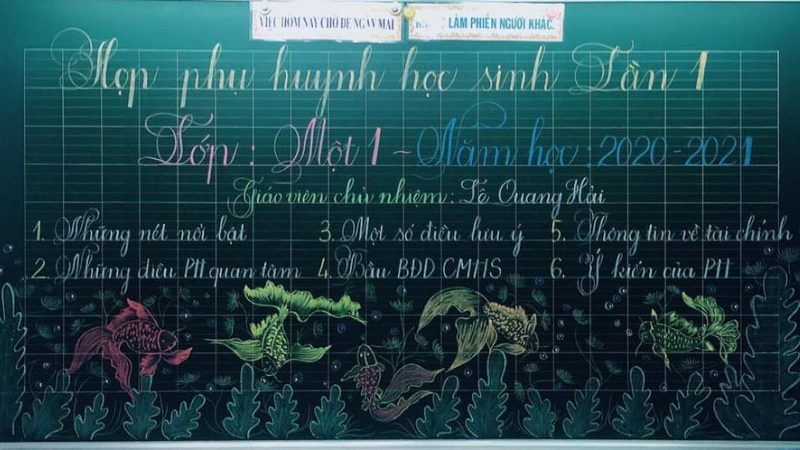 VIỆC HÔM NAY CHỚ ĐỂ NGÀY MAI
LÀM PHIỀN NGƯỜI KHÁC.
Họp phụ huynh học sinh Lần 1
Lớp : Một 1 ~ Năm học : 2020-2021
Giáo viên chủ nhiệm : Lê Quang Hải
1. Những nét nổi bật
2. Những điều PH quan tâm
3. Một số điều lưu ý
4. Bầu BDD CMHS
5. Thông tin về tài chính
6. Ý kiến của PH